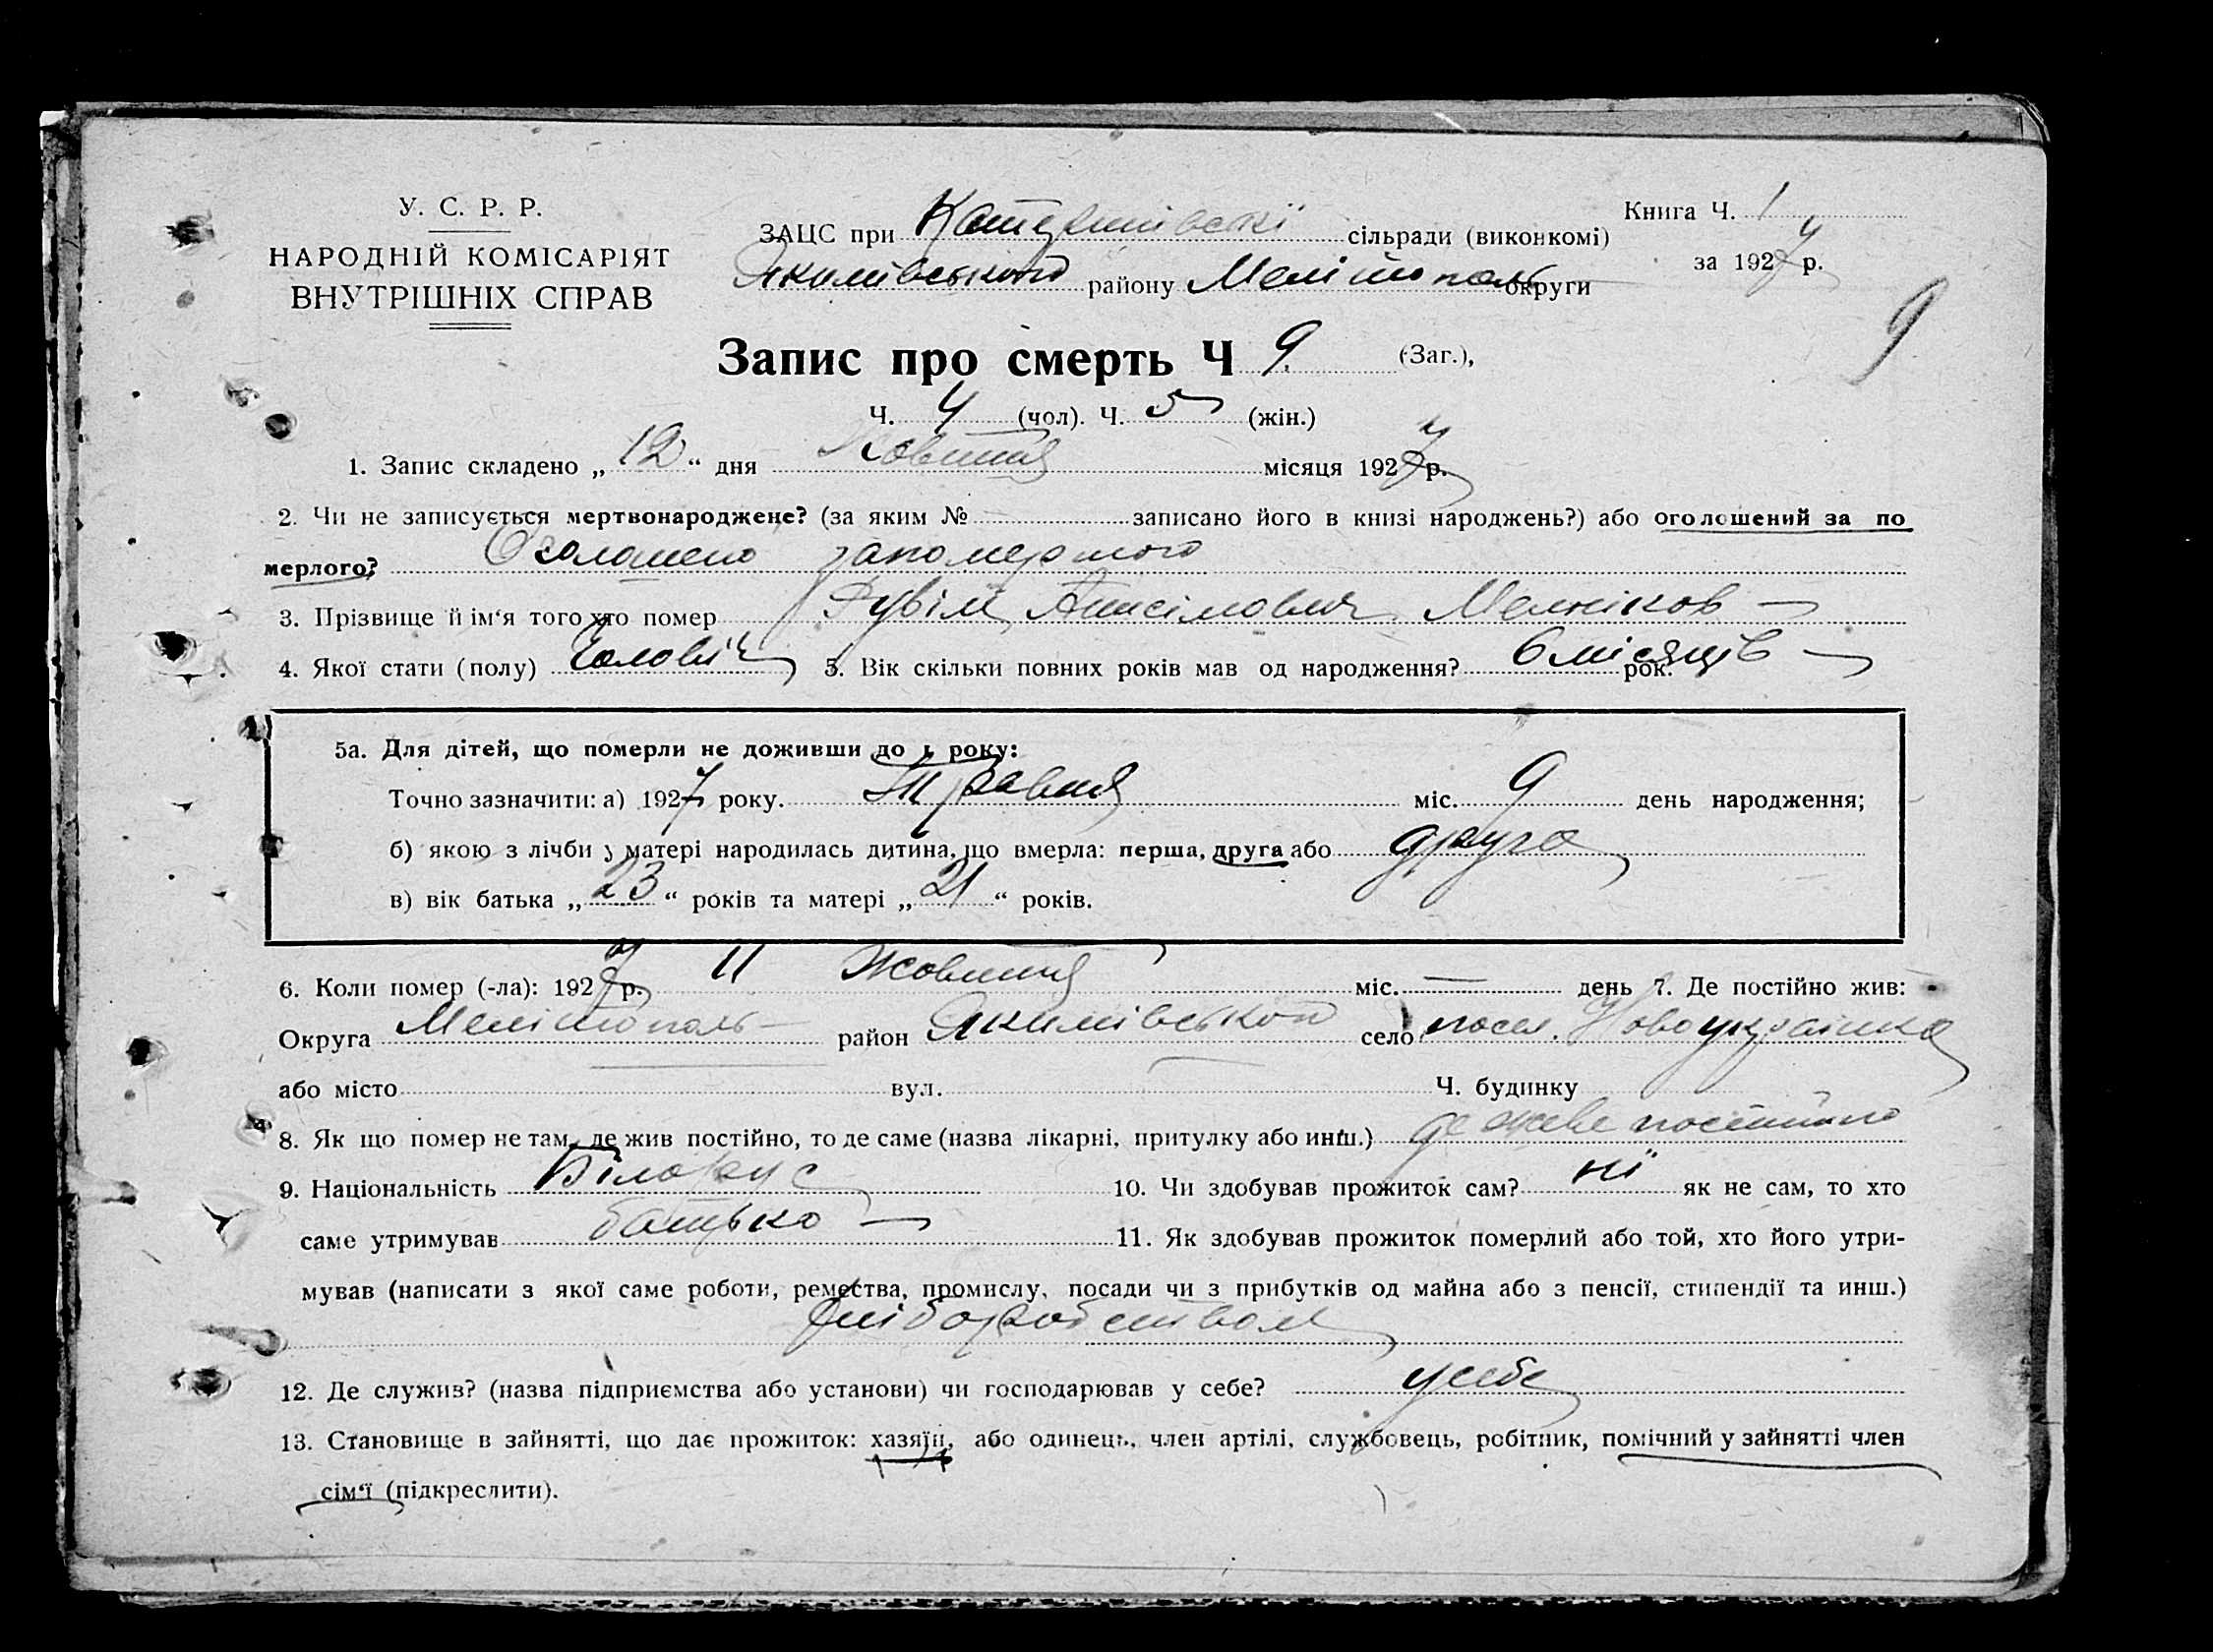 У. С. Р. Р.
НАРОДНІЙ КОМІСАРІЯТ
ВНУТРІШНІХ СПРАВ
ЗАЦС при Катеринівскі сільради (виконкомі)
Якимівського району Мелітополь округи
Книга Ч. 1
за 1927 р.
9
Запис про смерть Ч 9. (Заг.),
Ч. 4 (чол). Ч. 5 (жін.)
1. Запис складено „ 12 “ дня Жовтня місяця 1927 р.
2. Чи не записується мертвонароджене? (за яким № записано його в книзі народжень?) або оголошений за по
мерлого? Оголошено запомерлого
3. Прізвище й ім‘я того хто помер Рувім Анисімович Мелніков
4. Якої стати (полу) Чоловіч 5. Вік скільки повних років мав од народження? 6 місяців рок.
5а. Для дітей, що померли не доживши до 1 року:
Точно зазначити: а) 1927 року. Травня міс. 9 день народження;
б) якою з лічби у матері народилась дитина, що вмерла: перша, друга або друга
в) вік батька „ 23 “ років та матері „ 21 “ років.
6. Коли помер (-ла): 1927 р. 11 Жовтня міс. — день 7. Де постійно жив:
Округа Мелітополь район Якимівського село посел. Новоукраінка
або місто вул. Ч. будинку
8. Як що помер не там, де жив постійно, то де саме (назва лікарні, притулку або инш.) де живе постійно
9. Національність Білорус 10. Чи здобував прожиток сам? ні як не сам, то хто
саме утримував батько 11. Як здобував прожиток померлий або той, хто його утри-
мував (написати з якої саме роботи, ремества, промислу, посади чи з прибутків од майна або з пенсії, стипендії та инш.)
Хліборобством
12. Де служив? (назва підприємства або установи) чи господарював у себе? усебе
13. Становище в зайнятті, що дає прожиток: хазяїн, або одинець, член артілі, службовець, робітник, помічний у зайнятті член
сім‘ї (підкреслити).